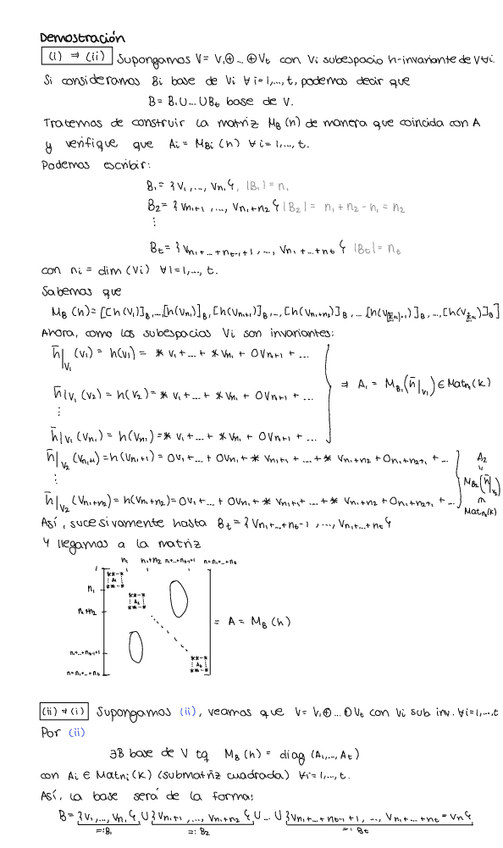 Demostración
(i) ⇒ (ii) Supongamos V = V₁⊕...⊕Vt con Vi subespacio h-invariante de V ∀i.
Si consideramos Bi base de Vi ∀i=1,...,t, podemos decir que
B = B₁∪...∪Bt base de V.
Tratemos de construir la matriz M_B(h) de manera que coincida con A
y verifique que Ai = M_Bi(h) ∀i=1,...,t.
Podemos escribir:
B₁ = {v₁,...,vn₁}, |B₁| = n₁
B₂ = {vn₁+1,...,vn₁+n₂} |B₂| = n₁+n₂-n₁ = n₂
⋮
Bt = {vn₁+...+nt-1+1,...,vn₁+...+nt} |Bt| = nt
con ni = dim(Vi) ∀i=1,...,t.
Sabemos que
M_B(h) = [[h(v₁)]_B,...,[h(vn₁)]_B,[h(vn₁+1)]_B,...,[h(vn₁+n₂)]_B,...
Ahora, como los subespacios Vi son invariantes:
h̄|V₁(v₁) = h(v₁) = * v₁+...+ * vn₁ + 0vn₁+1 + ...
h̄|V₁(v₂) = h(v₂) = * v₁+...+ * vn₁ + 0vn₁+1 + ... ⇒ A₁ = M_B₁(h̄|V₁) ∈ Matn₁(K)
⋮
h̄|V₁(vn₁) = h(vn₁) = * v₁+...+ * vn₁ + 0vn₁+1 + ...
h̄|V₂(vn₁+1) = h(vn₁+1) = 0v₁+...+ 0vn₁ + * vn₁+1 + ...+ * vn₁+n₂ + 0n₁+n₂+1 + ... A₂
⋮ M_B₂(h̄|V₂)
h̄|V₂(vn₁+n₂) = h(vn₁+n₂) = 0v₁+...+ 0vn₁ + * vn₁+1 + ...+ * vn₁+n₂ + 0n₁+n₂+1 + ... Matn₂(K)
Así, sucesivamente hasta Bt = {vn₁+...+nt-1,...,vn₁+...+nt}
Y llegamos a la matriz
n₁ n₁+n₂ n₁+...+nt-1+1 n₁+n₂+...+nt
n₁ A₁
n₁+n₂ A₂
= A = M_B(h)
n₁+...+nt-1+1
n₁+n₂+...+nt At
(ii) ⇒ (i) Supongamos (ii), veamos que V = V₁⊕...⊕Vt con Vi sub inv. ∀i=1,...,t
Por (ii)
∃B base de V tq M_B(h) = diag(A₁,...,At)
con Ai ∈ Matni(K) (submatriz cuadrada) ∀i=1,...,t.
Así, la base será de la forma:
B = {v₁,...,vn₁} ∪ {vn₁+1,...,vn₁+n₂} ∪...∪ {vn₁+...+nt-1+1,...,vn₁+...+nt = vn}
=:B₁ =:B₂ =:Bt